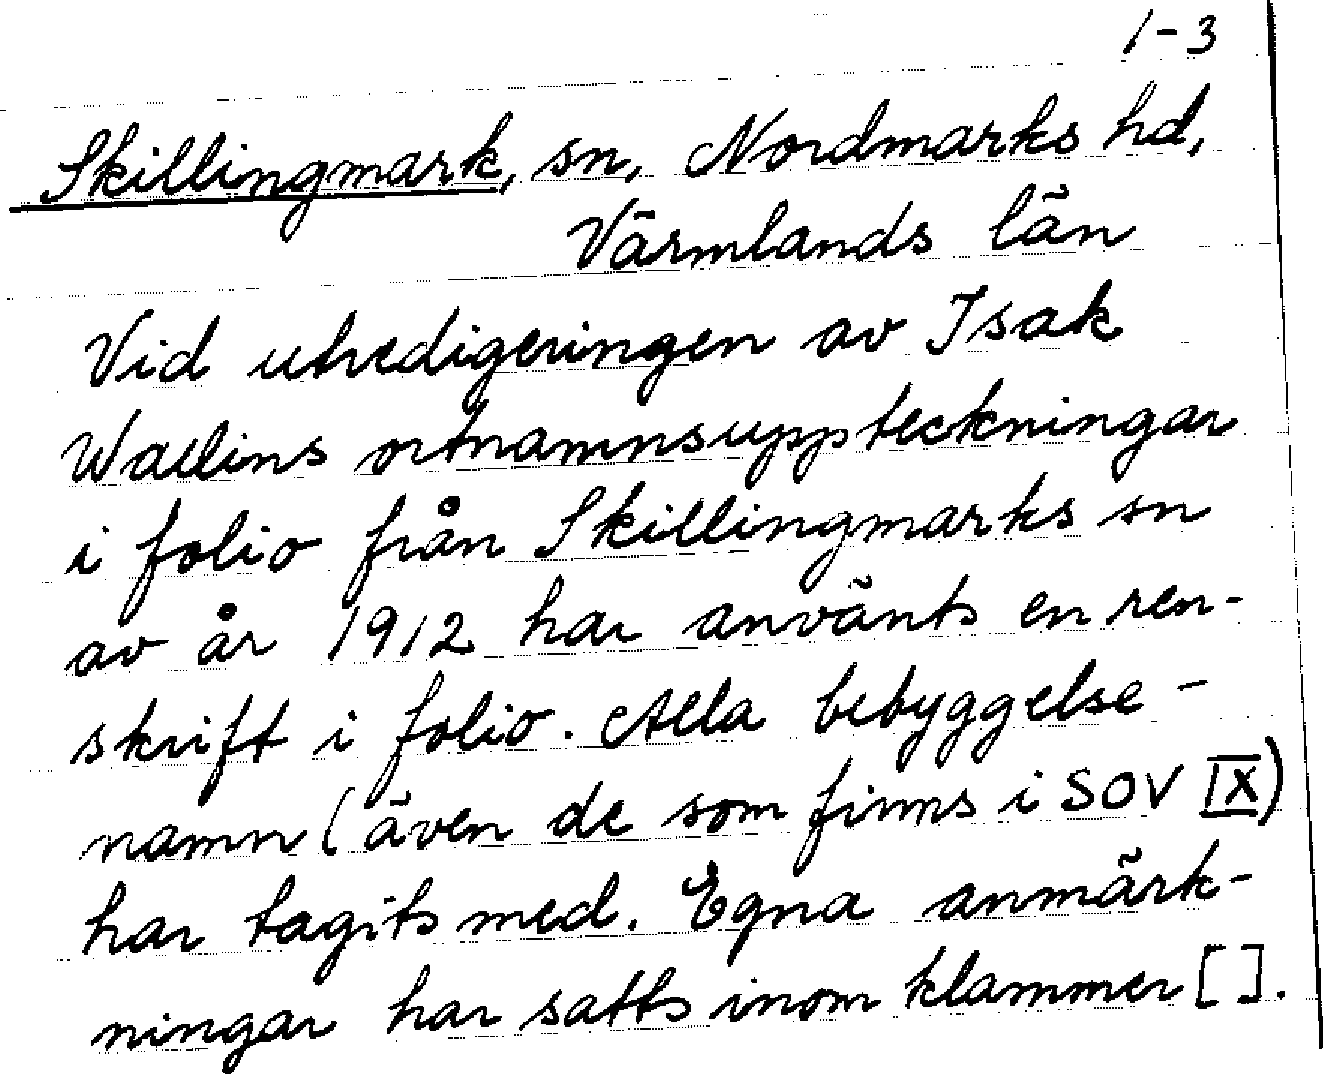 1-3
Skillingmark, sn, Nordmarks hd,
Värmlands län
Vid utredigeringen av Isak
Wallins ortnamnsuppteckningar
i folio från Skillingmarks sn
av år 1912 har använts en ren-
skrift i folio. Alla bebyggelse-
namn (även de som finns i SOV IX)
har tagits med. Egna anmärk-
ningar har satts inom klammer [ ].